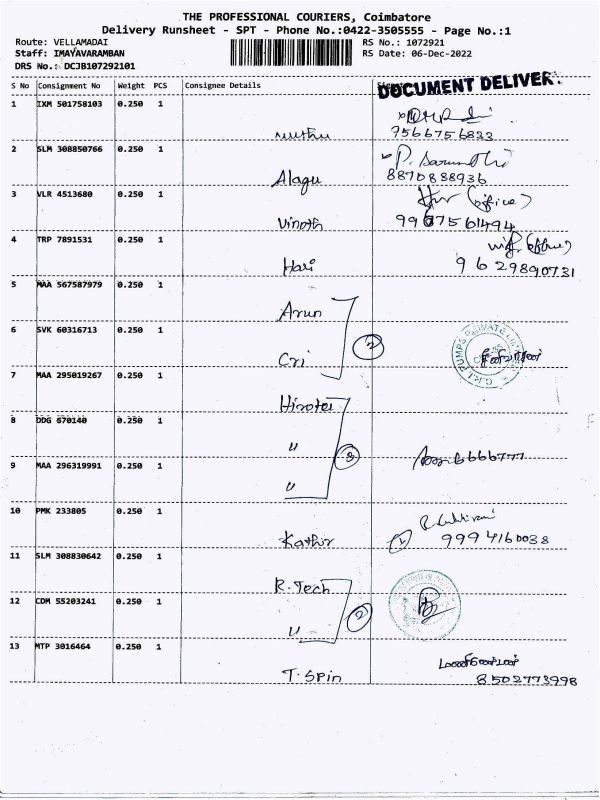 THE PROFESSIONAL COURIERS, Coimbatore
Delivery Runsheet - SPT - Phone No.:0422-3505555 - Page No.:1
Route: VELLAMADAI
RS No.: 1072921
Staff: IMAYAVARAMBAN
RS Date: 06-Dec-2022
DRS No.: DCJB107292101
S No Consignment No Weight PCS Consignee Details
DOCUMENT DELIVER
1 IXM 501758103 0.250 1
Muthu 9566756833
2 SLM 308850766 0.250 1
Alagu 8870888936
3 VLR 4513680 0.250 1 (office)
Vinoth 9967561494
4 TRP 7891531 0.250 1
Hari 9629890731
5 MAA 567587979 0.250 1
Arun
6 SVK 60316713 0.250 1
Cri 2
7 MAA 295019267 0.250 1
8 DDG 670140 0.250 1
" 3
9 MAA 296319991 0.250 1
"
10 PMK 233805 0.250 1
Kathir 1 9994160038
11 SLM 308830642 0.250 1
R.Tech
12 CDM 55203241 0.250 1
" 2
13 MTP 3016464 0.250 1
T.Spin 8502773998